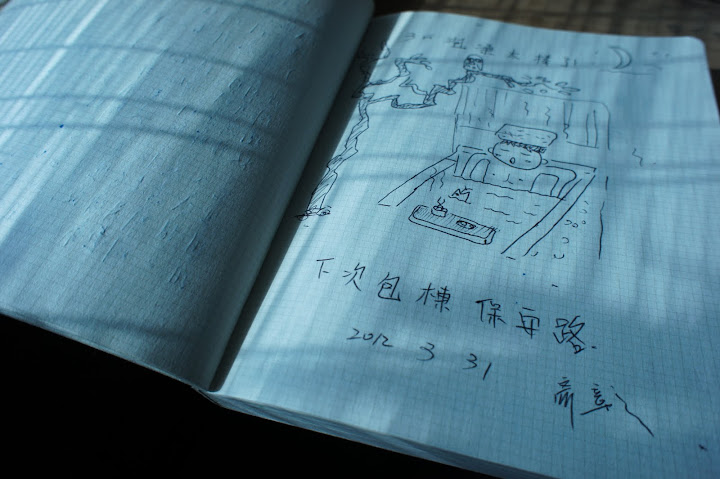 泡 太棒
下次包棟 保安路.
2012 3 31